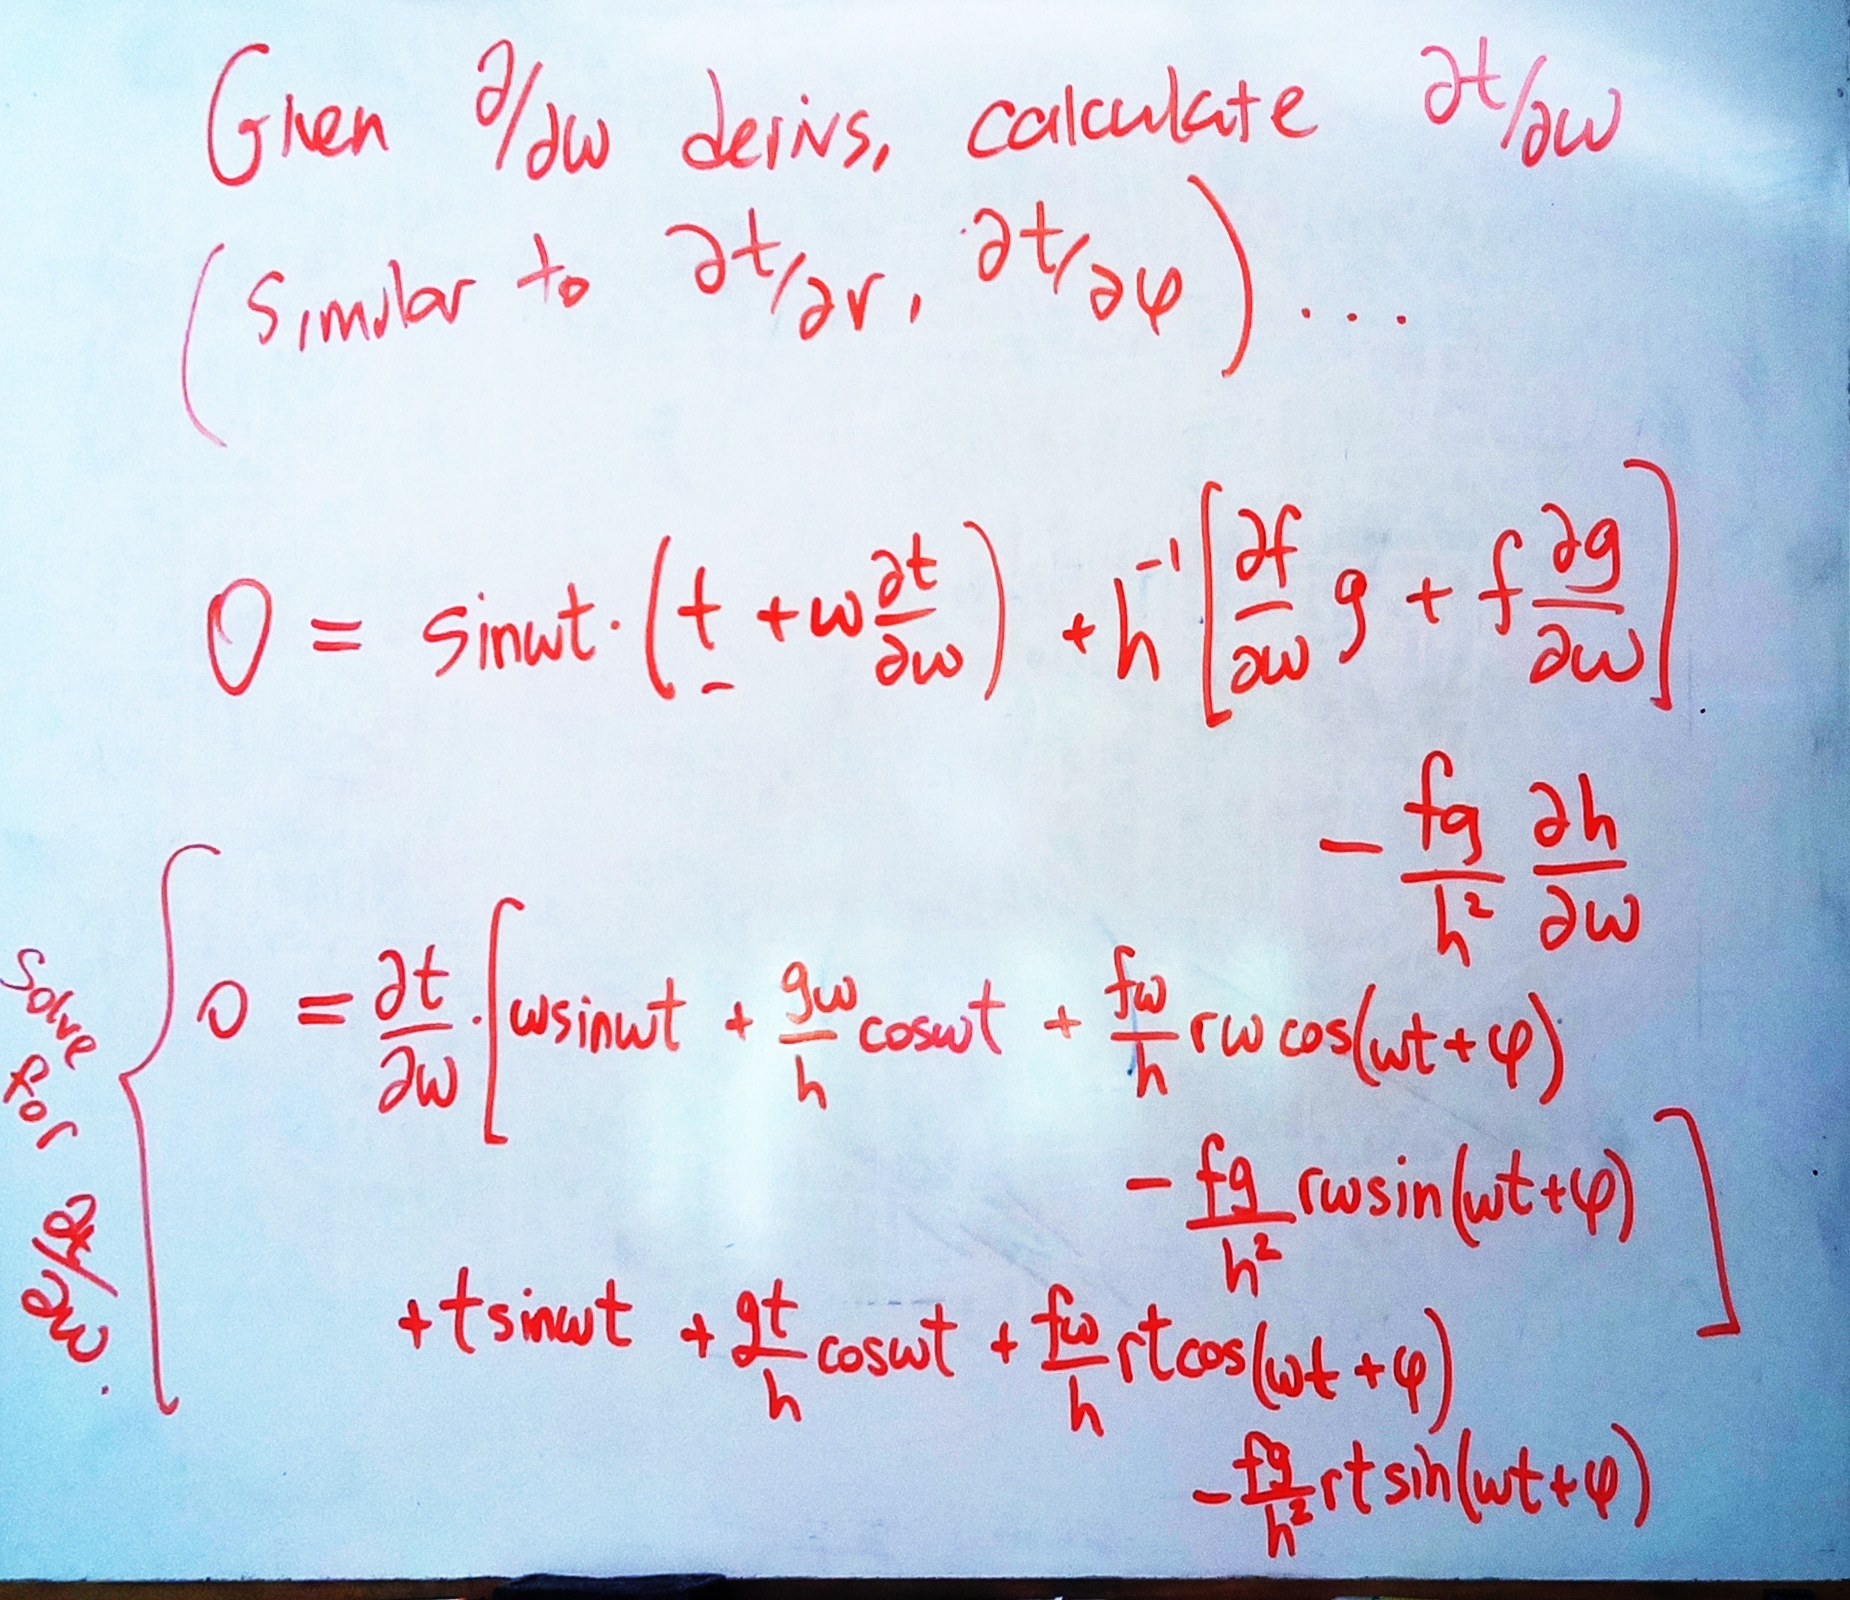 Given ∂/∂ω derivs, calculate ∂t/∂ω
(similar to ∂t/∂r, ∂t/∂φ)...
0 = sinωt·(t + ω ∂t/∂ω) + h⁻¹[∂f/∂ω g + f ∂g/∂ω]
- fg/h² ∂h/∂ω
solve for ∂t/∂ω.
0 = ∂t/∂ω·[ωsinωt + gω/h cosωt + fω/h rω cos(ωt+φ)
- fg/h² rωsin(ωt+φ)]
+tsinωt + gt/h cosωt + fω/h rtcos(ωt+φ)
- fg/h² rtsin(ωt+φ)